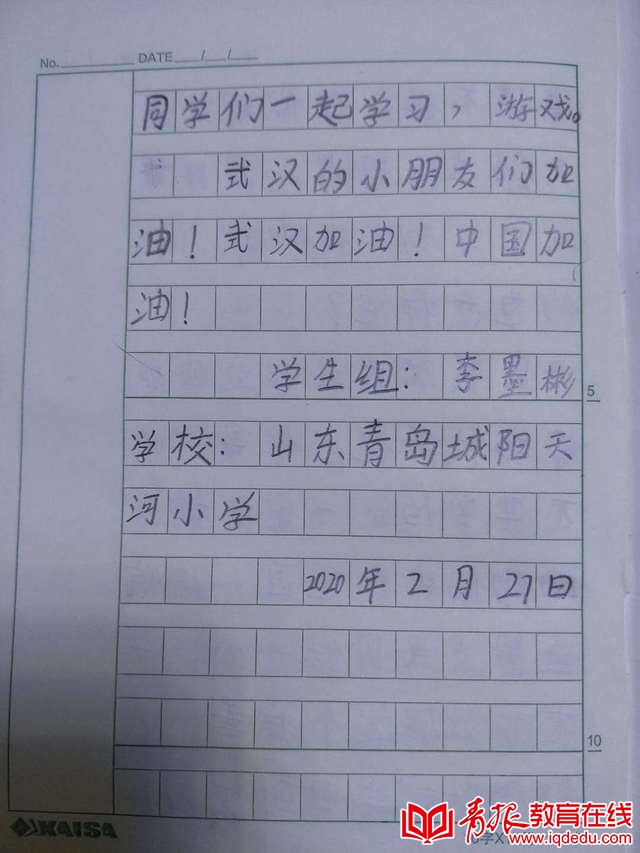 No. DATE / /
同学们一起学习，游戏。
式汉的小朋友们加
油！式汉加油！中国加
油！
学生组：李墨彬
5
学校：山东青岛城阳天
河小学
2020年2月27日
10
KAISA
青报教育在线
www.iqdedu.com